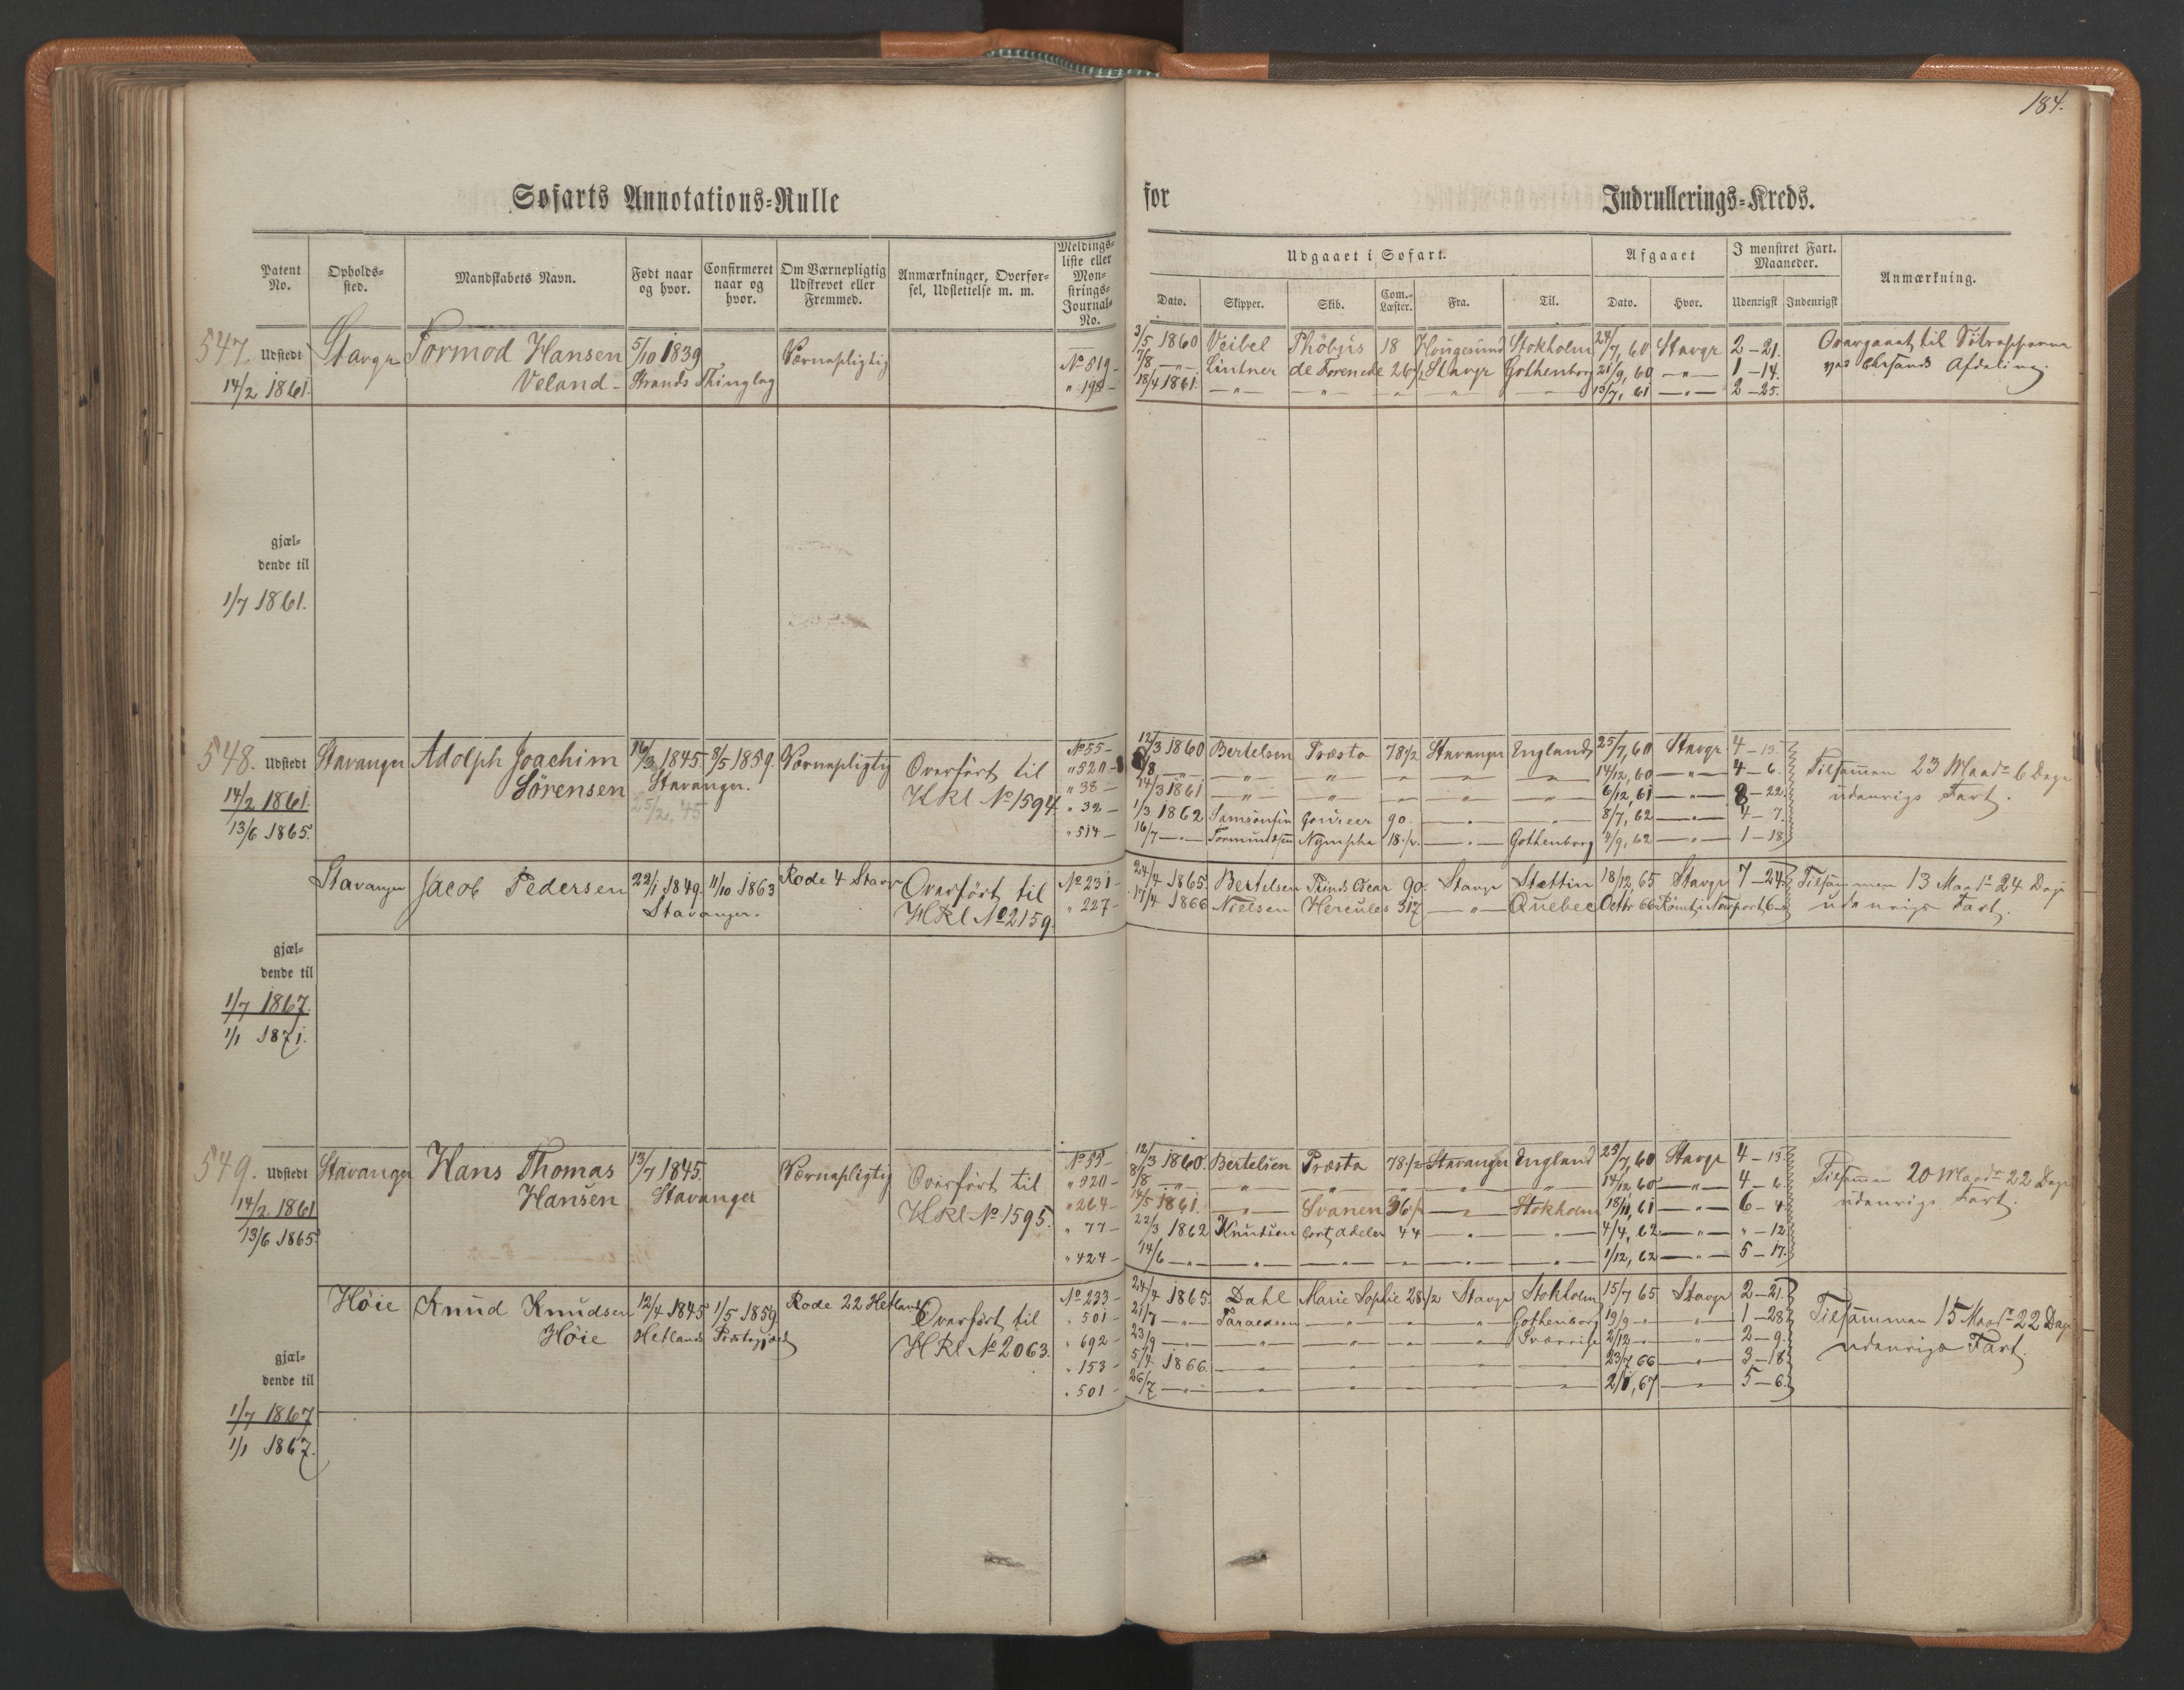 184.
Søfarts Annotations-Rulle
for Indrullerings-Kreds.
Patent No.
Opholds-sted.
Mandskabets Navn.
Født naar og hvor.
Confirmeret naar og hvor.
Om Værnepligtig Udskrevet eller Fremmed.
Anmærkninger, Overfør-sel, Udslettelse m. m.
Meldings-liste eller Mon-strings-Journal-No.
Udgaaet i Søfart.
Afgaaet
I mønstret Fart. Maaneder.
Anmærkning.
Dato. Skipper. Skib. Com.-Læster. Fra. Til. Dato. Hvor. Udenrigsk Indenrigsk
547. Udstedt Stavgr Tormod Hansen 5/10 1839 Værnepligtig No 819-
14/2 1861. Veland- Strands Thinglag " 198-
3/5 1860 Veibel Phöbus 18 Stokholm 24/7, 60 Stavgr 2-21.
7/8 -"- Lintner 26 Stavgr Gothenborg 21/9, 60 -"- 1-14.
18/4 1861. -"- -"- -"- -"- -"- 13/7, 61 -"- 2-25.
Overgaaet til
Afdeling.
gjæl-
dende til
1/7 1861.
548. Udstedt Stavanger Adolph Joachim 1845. 8/5 1859. Værnepligtig Overført til No 55-
14/2 1861. Sörensen Stavanger. HRl No 1594. " 520-
13/6 1865. 25/2. 45 " 38-
" 32-
" 514-
12/3 1860 Bertelsen Præsto 78 1/2 Stavanger England 25/7, 60 Stavgr 4-13.
8/8 -"- -"- " -"- -"- -"- 14/12, 60 -"- 4-6.
14/3 1861 -"- " -"- -"- -"- 6/12, 61 -"- 8-22.
1/3 1862 90. -"- -"- 8/7, 62 -"- 4-7.
16/7 -"- Nympha 18 1/2. -"- Gothenborg 4/9, 62 -"- 1-18.
Tilsammen 23 Maadr 6 Dage
udenrigs Fart.
Stavanger Jacob Pedersen 22/1 1849. 11/10 1863 Rode 4 Stavgr Overført til No 231-
Stavanger. HRl No 2159. " 227-
24/4 1865. Bertelsen Prinds Oscar 90. Stavgr Stettin 18/12, 65 Stavgr 7-24.
17/4 1866 Nielsen Hercules 317 -"- Quebec Octbr 66
Tilsammen 13 Maadr 24 Dage
udenrigs Fart.
gjæl-
dende til
1/7 1867.
1/1 1871.
549. Udstedt Stavanger Hans Thomas 13/7 1845. Værnepligtig Overført til No 55-
14/2 1861 Hansen Stavanger HRl No 1595. " 520-
13/6 1865. " 264-
" 77-
" 424-
12/3 1860. Bertelsen Præsta 78 1/2 Stavanger England 25/7, 60 Stavgr 4-13
8/8 -"- " -"- -"- -"- -"- 14/12, 60 -"- 4-6.
14/5 1861. -"- Svanen 36 1/2 -"- Stokholm 18/11, 61 -"- 6-4.
22/3 1862 Knudsen Cort Adeler 44 -"- -"- 4/4, 62 -"- "-12.
14/6 -"- -"- -"- -"- -"- -"- 1/12, 62 -"- 5-17.
Tilsammen 20 Maadr 22 Dage
udenrigs Fart.
Höie Knud Knudsen 12/4 1845 1/5 1859 Rode 22 Hetland Overført til No 233-
Höie Hetlands Præstegjæld HRl No 2063. " 501-
" 692-
" 153-
" 501-
24/4 1865. Dahl Marie Sophie 28 1/2 Stavgr Stokholm 15/7 65 Stavgr 2-21.
21/7 -"- -"- -"- " Gothenborg 19/9 -"- " 1-28.
23/9 -"- -"- -"- -"- " 2/12 -"- " 2-9.
5/4. 1866. -"- -"- -"- -"- -"- 23/7 66 -"- 3-18.
26/7 -"- -"- -"- -"- -"- -"- 2/1, 67 -"- 5-6.
Tilsammen 15 Maadr 22 Dage
udenrigs Fart.
gjæl-
dende til
1/7 1867
1/1 1867.